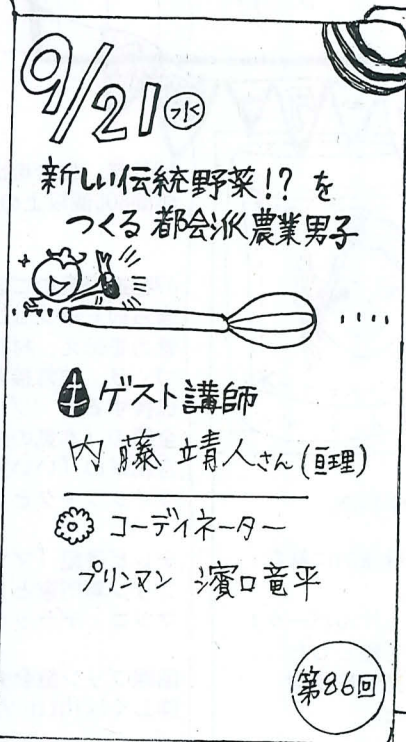 9/21 水
新しい伝統野菜!? を
つくる 都会派農業男子
ゲスト講師
内藤 靖人さん(亘理)
コーディネーター
プリンマン 濱口竜平
第86回